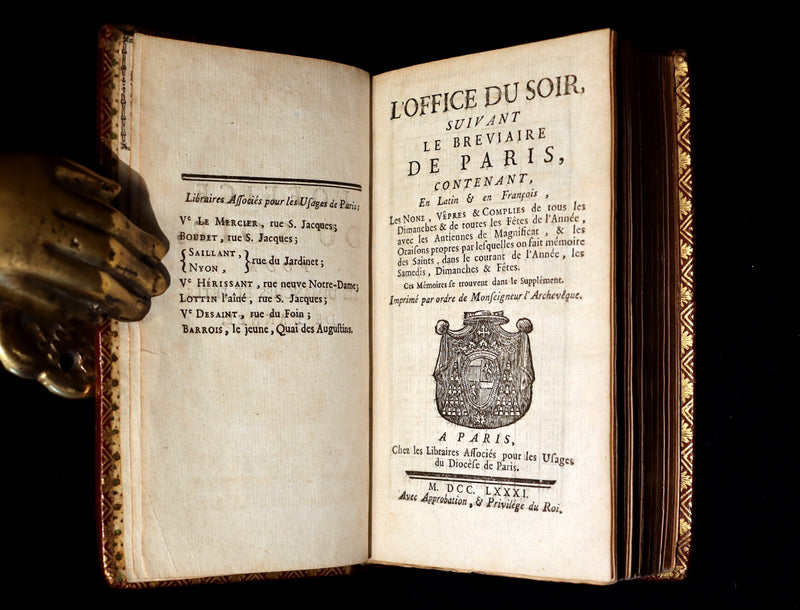 Libraires Aſſociés pour les Uſages de Paris;
Vᵉ LE MERCIER, rue S. Jacques;
BOUDET, rue S. Jacques;
SAILLANT,
NYON, rue du Jardinet;
Vᵉ HÉRISSANT, rue neuve Notre-Dame;
LOTTIN l'aîné, rue S. Jacques;
Vᵉ DESAINT, rue du Foin;
BARROIS, le jeune, Quai des Auguſtins.
L'OFFICE DU SOIR,
SUIVANT
LE BREVIAIRE
DE PARIS,
CONTENANT,
En Latin & en François,
Les NONE, VÊPRES & COMPLIES de tous les
Dimanches & de toutes les Fêtes de l'Année,
avec les Antiennes de Magnificat, & les
Oraiſons propres par leſquelles on fait mémoire
des Saints, dans le courant de l'Année, les
Samedis, Dimanches & Fêtes.
Ces Mémoires ſe trouvent dans le Supplément.
Imprimé par ordre de Monſeigneur l'Archevêque.
A PARIS,
Chez les Libraires Aſſociés pour les Uſages
du Diocèſe de Paris.
M. DCC. LXXXI.
Avec Approbation, & Privilége du Roi.